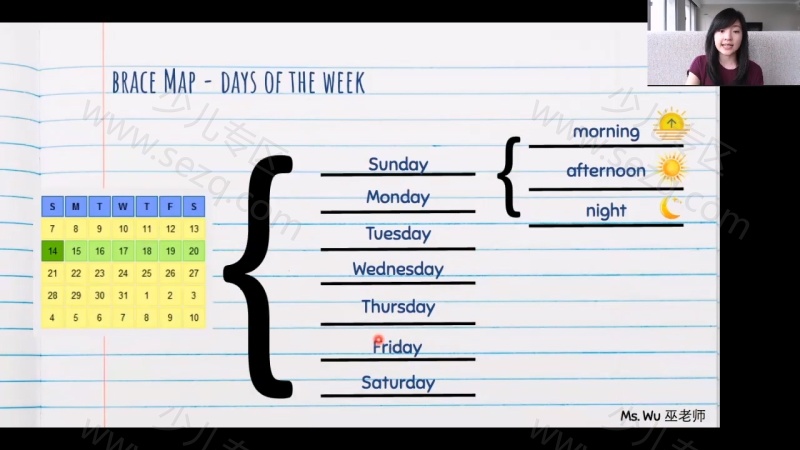 BRACE MAP - DAYS OF THE WEEK
S M T W T F S
7 8 9 10 11 12 13
14 15 16 17 18 19 20
21 22 23 24 25 26 27
28 29 30 31 1 2 3
4 5 6 7 8 9 10
Sunday
Monday
Tuesday
Wednesday
Thursday
Friday
Saturday
morning
afternoon
night
Ms. Wu 巫老师
少儿专区
www.sezq.com
少儿专区
www.sezq.com